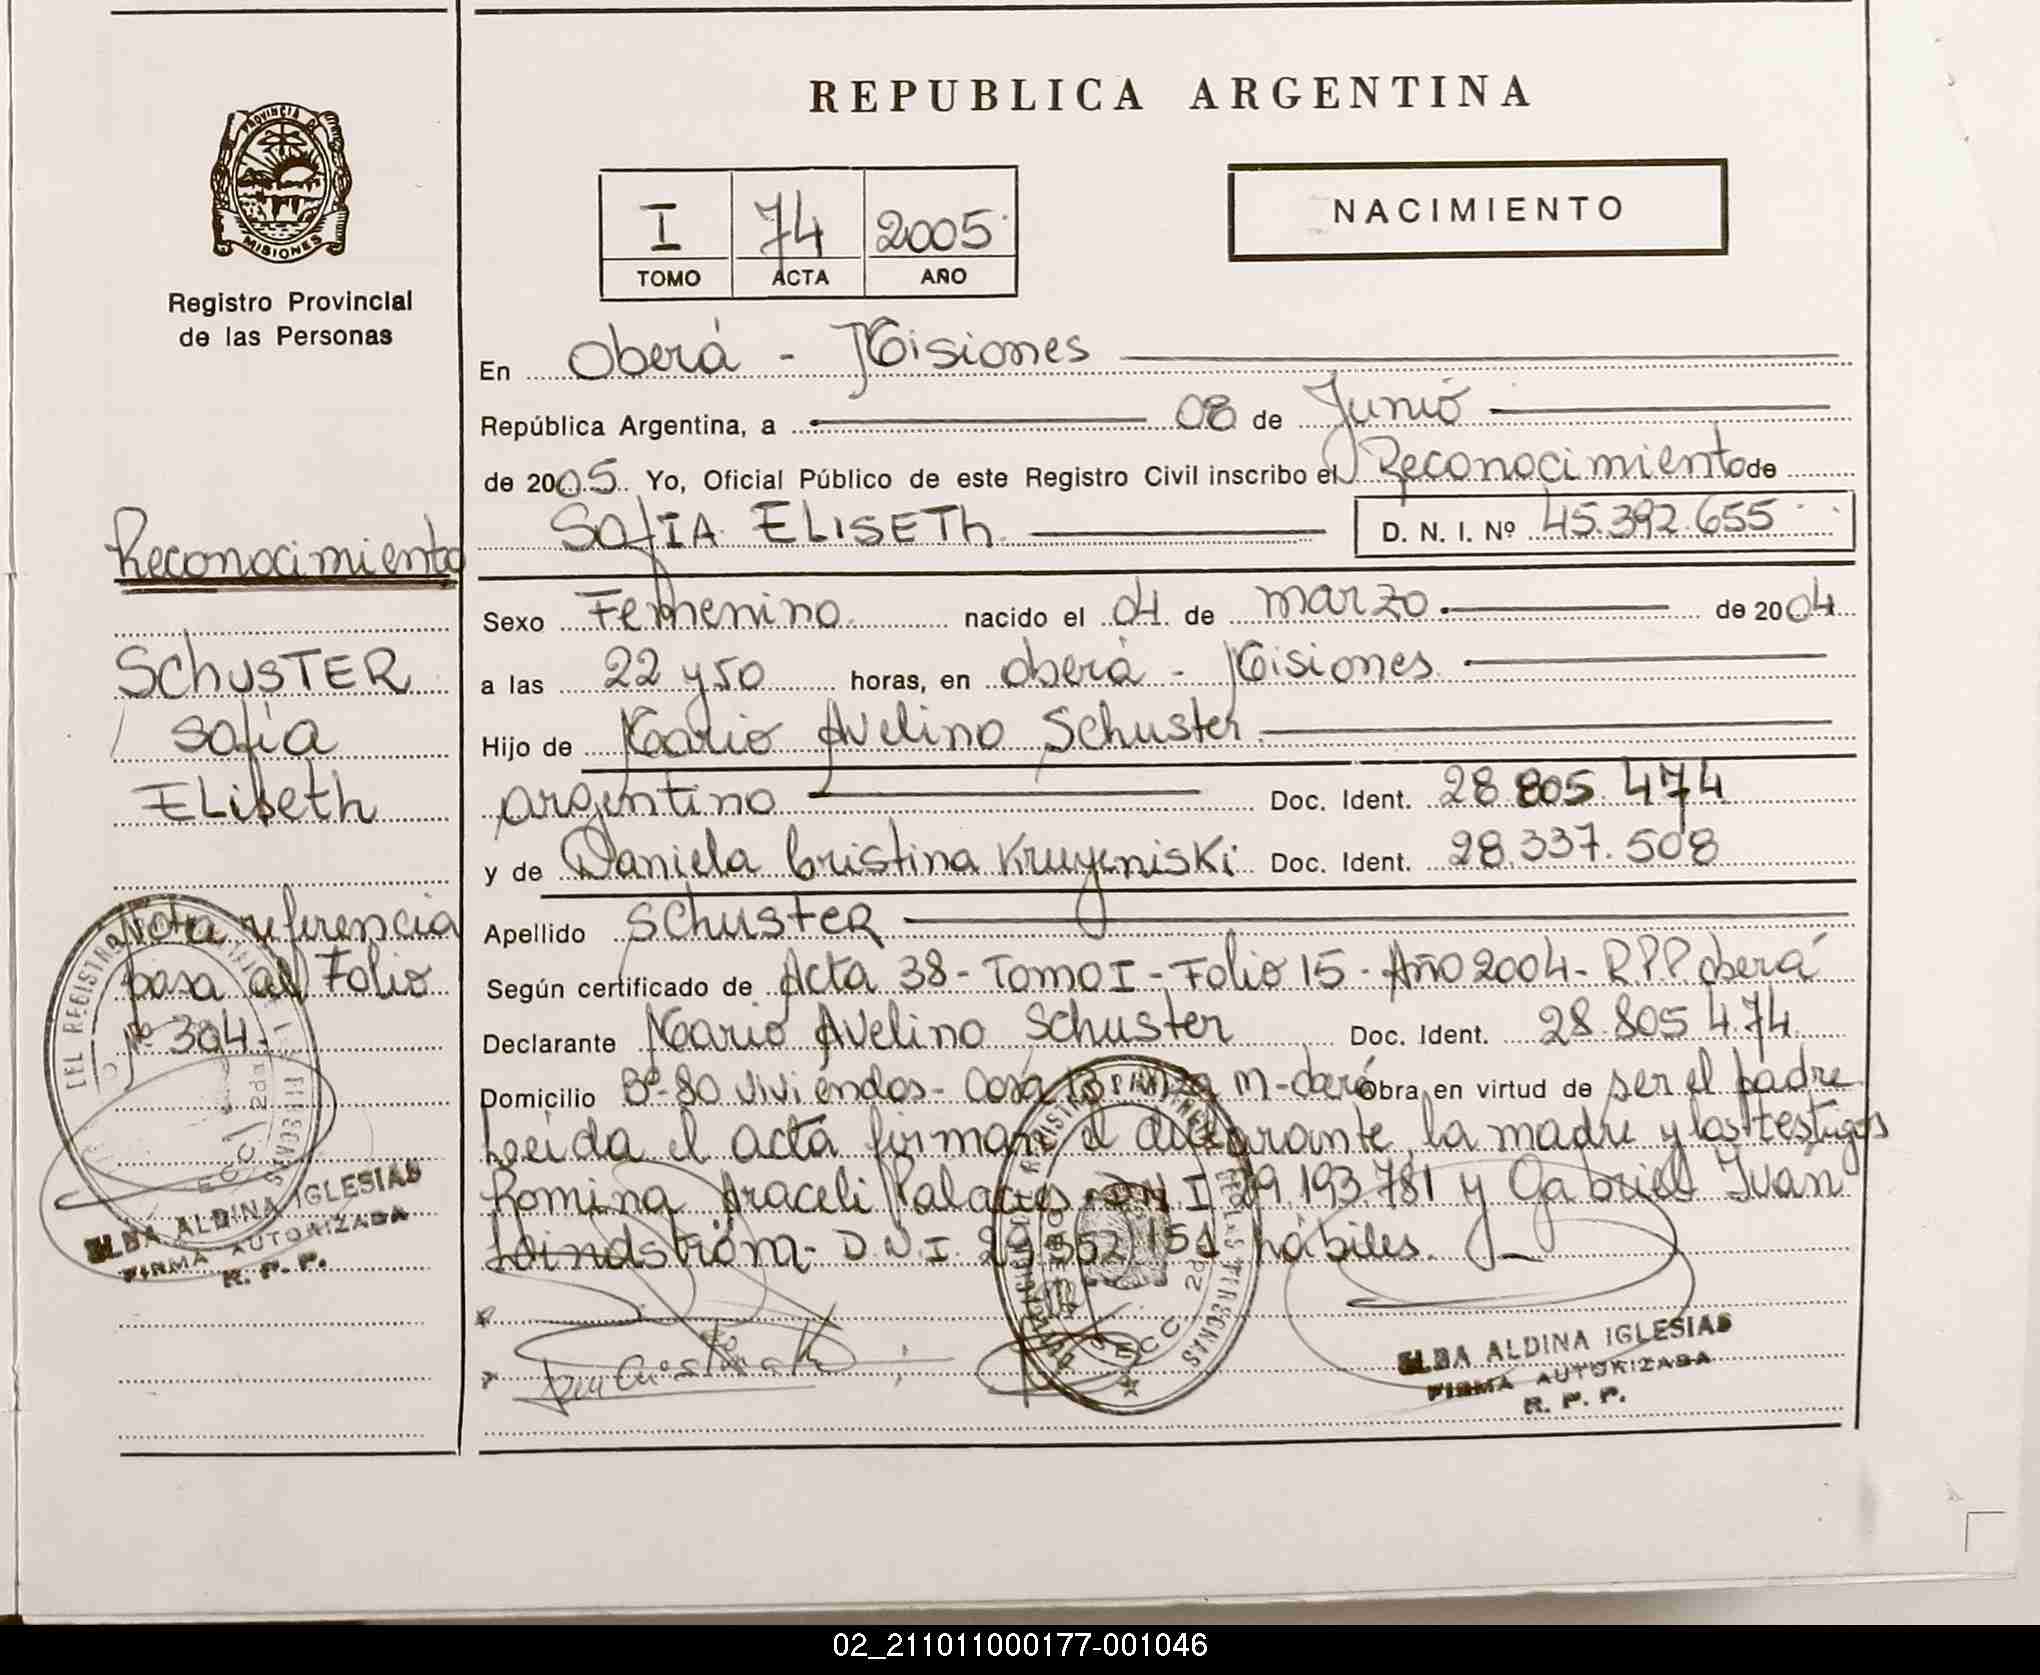 REPUBLICA ARGENTINA
PROVINCIA DE
MISIONES
Registro Provincial
de las Personas
I 74 2005
TOMO ACTA AÑO
NACIMIENTO
En Oberá - Misiones
República Argentina, a 08 de Junio
de 2005 Yo, Oficial Público de este Registro Civil inscribo el Reconocimiento de
SofIA ELISETh D. N. I. Nº 45.392.655
Sexo Femenino nacido el 04 de marzo de 2004
a las 22 y 50 horas, en Oberá - Misiones
Hijo de Mario Avelino Schuster
argentino Doc. Ident. 28.805.474
y de Daniela Cristina Kruyeniski Doc. Ident. 28.337.508
Apellido SchusteR
Según certificado de Acta 38 - Tomo I - Folio 15 - Año 2004 - R.P.P. Oberá
Declarante Mario Avelino Schuster Doc. Ident. 28.805.474
Domicilio Bº 80 Viviendas - Casa 13 M - Oberá Obra en virtud de ser el padre
Leída el acta firman el declarante, la madre y los testigos
Romina Araceli Palacios D.N.I 29.193.781 y Gabriel Ivan
Lindström - D.N.I. hábiles.
ELBA ALDINA IGLESIAS
FIRMA AUTORIZADA
R. P. P.
Reconocimiento
SchusTER
Sofía
ELiseth
Nota referencia
pasa al Folio
Nº 304.
ELBA ALDINA IGLESIAS
FIRMA AUTORIZADA
R. P. P.
02_211011000177-001046